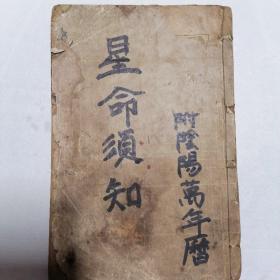 星命須知
附陰陽萬年曆